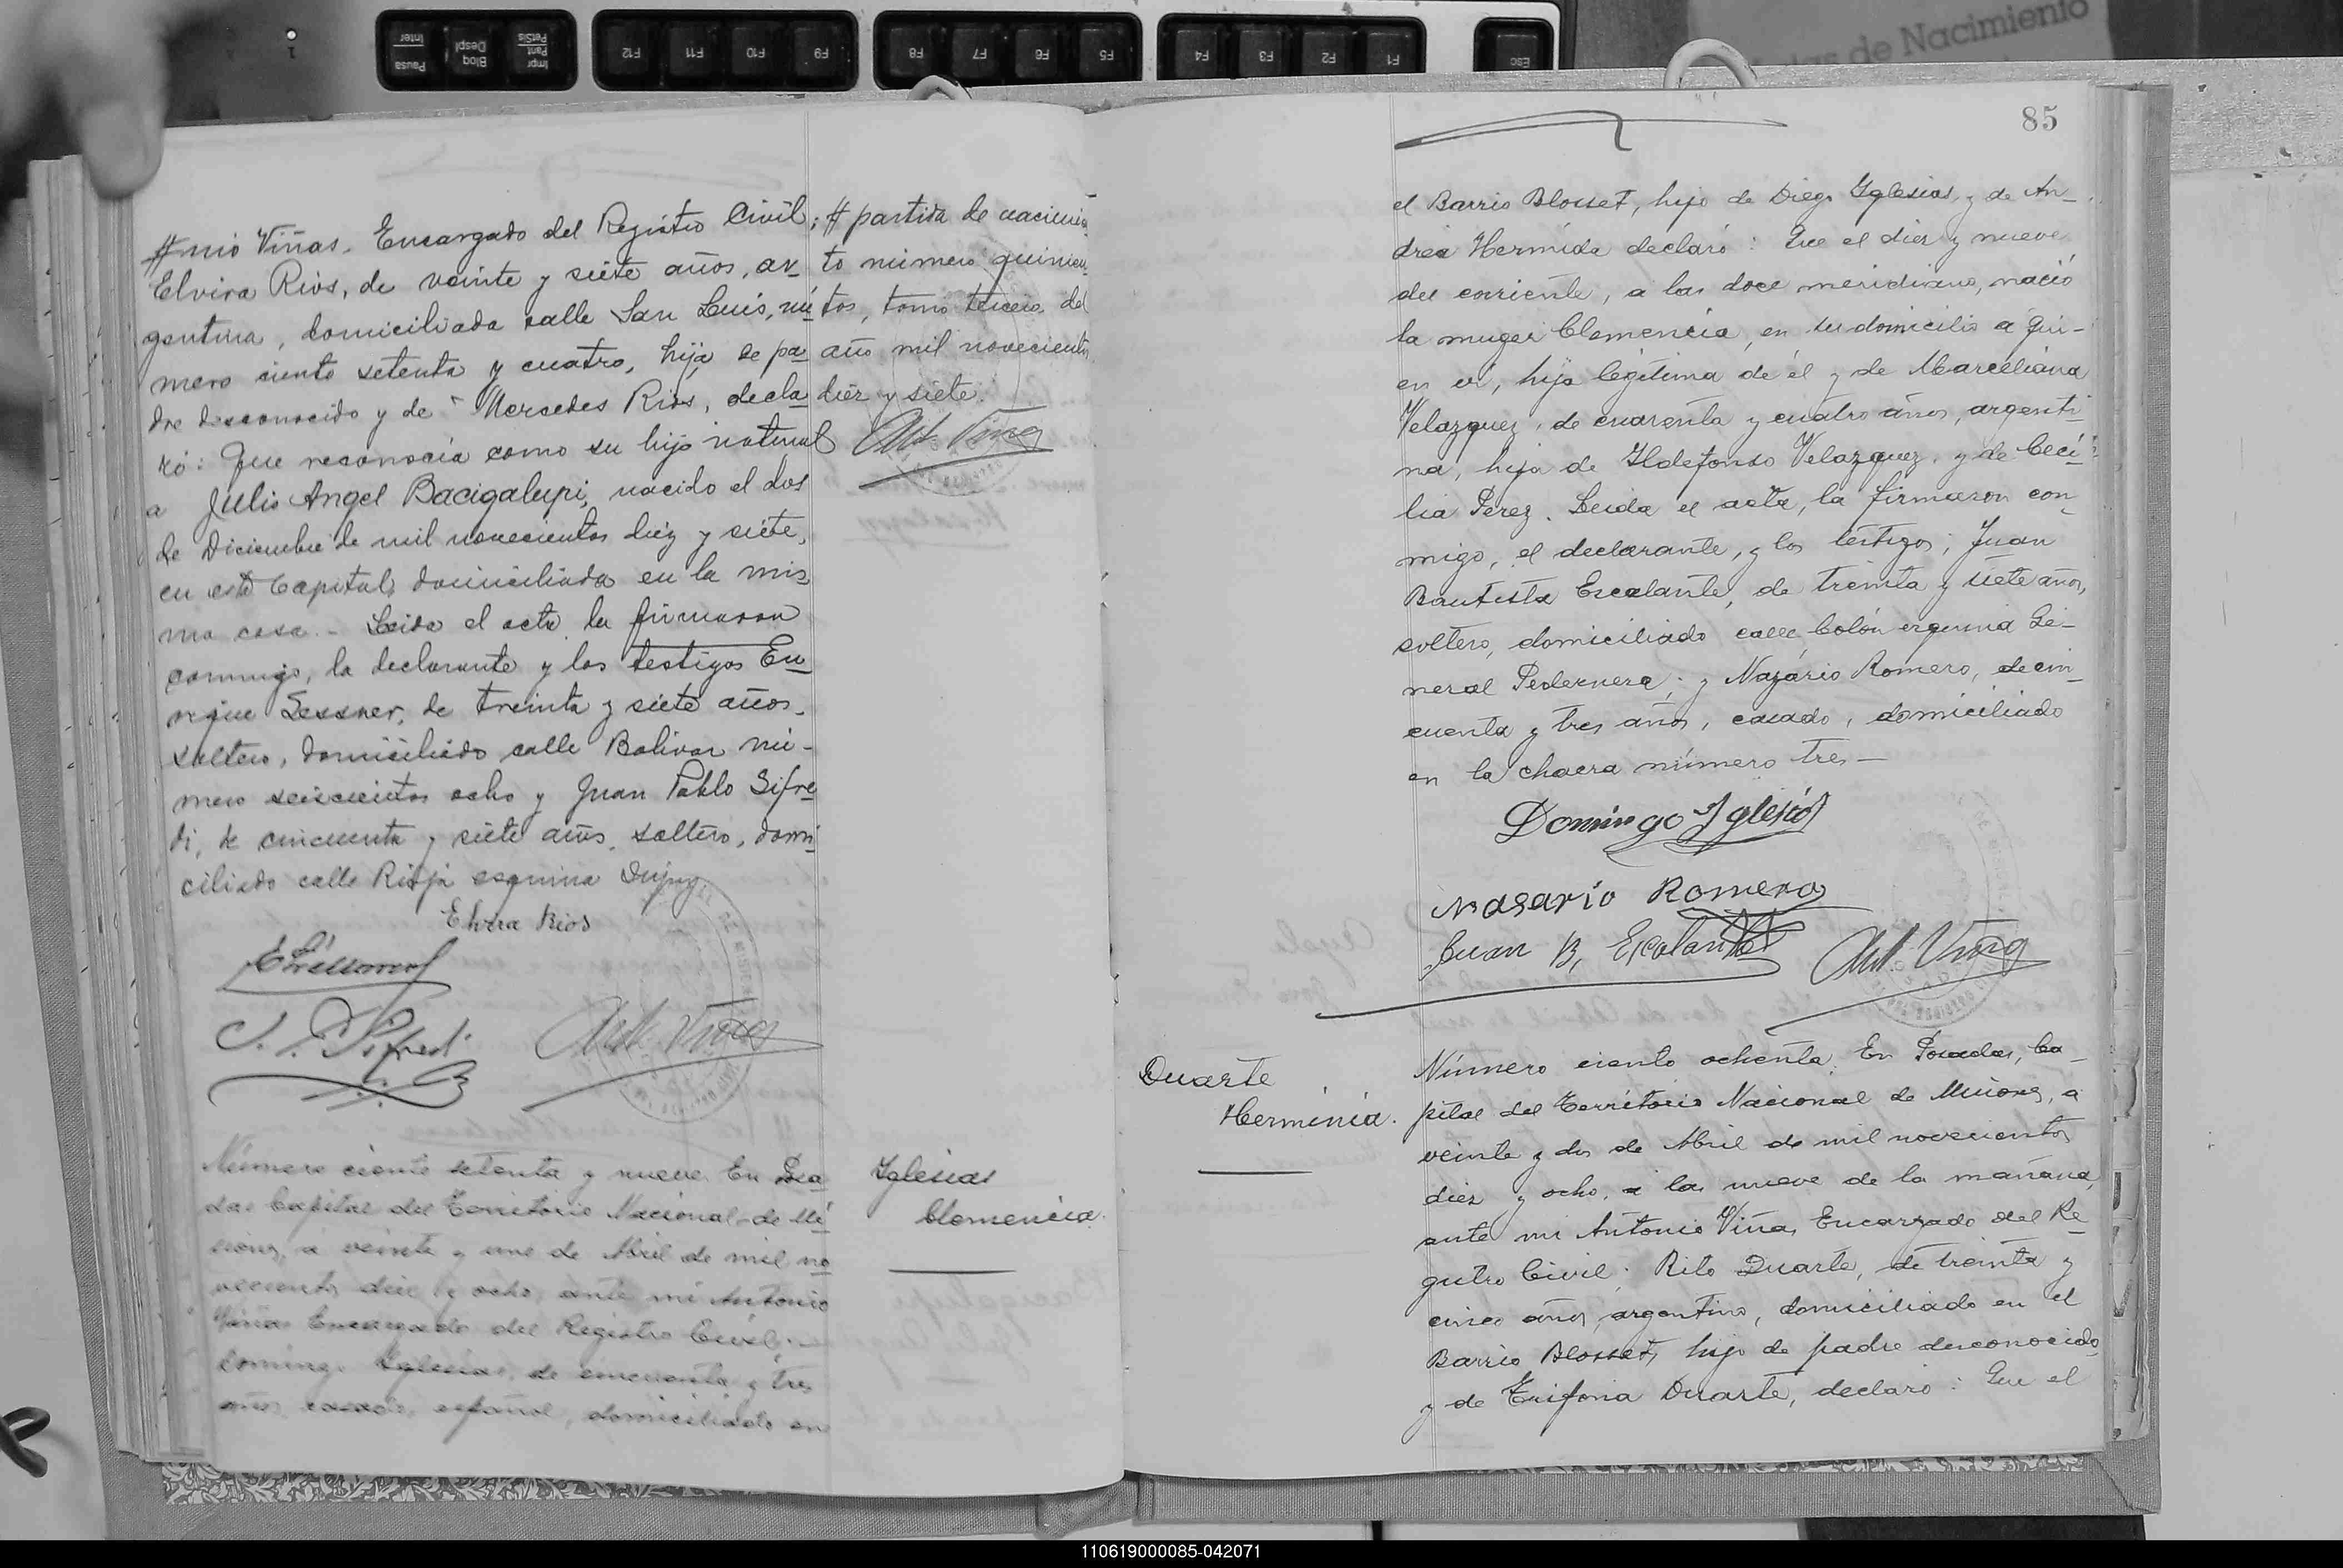 Pausa
Inter
Bloq
Despl
Impr
Pant
PetSis
F12
F11
F10
F9
F8
F7
F6
F5
F4
F3
F2
F1
Esc
de Nacimiento
# nio Viñas. Encargado del Registro Civil;
Elvira Rios, de veinte y siete años, ar-
gentina, domiciliada calle San Luis, nú-
mero ciento setenta y cuatro, hija de pa-
dre desconocido y de Mercedes Rios, decla-
ró: Que reconocia como su hijo natural
a Julio Angel Bacigalupi, nacido el dos
de Diciembre de mil novecientos diez y siete,
en esta Capital, domiciliada en la mis-
ma casa.- Leida el acta, la firmaron
conmigo, la declarante y los testigos En-
rique Lessner, de treinta y siete años,
soltero, domiciliado calle Bolivar nú-
mero seiscientos ocho y Juan Pablo Sifre-
di, de cincuenta y siete años, soltero, domi-
ciliado calle Rioja esquina Jujuy.
Elvira Rios
J. P. Sifredi
Ant. Viñas
# partida de nacimien-
to número quinien-
tos, tomo tercero, del
año mil novecientos
diez y siete.
Ant. Viñas
Número ciento setenta y nueve. En Posa-
das Capital del Territorio Nacional de Mi-
siones, a veinte y uno de Abril de mil no-
vecientos diez y ocho, ante mi Antonio
Viñas Encargado del Registro Civil:
Domingo Iglesias, de cincuenta y tres
años, casado, español, domiciliado en
Iglesias
Clemencia.
85
el Barrio Blosset, hijo de Diego Iglesias, y de An-
drea Hermida declaró: Que el diez y nueve
del corriente, a las doce meridiano, nació
la muger Clemencia, en su domicilio a qui-
en vi, hija legitima de él y de Marceliana
Velazquez, de cuarenta y cuatro años, argenti-
na, hija de Ildefonso Velazquez, y de Ceci-
lia Perez. Leida el acta, la firmaron con-
migo, el declarante, y los testigos; Juan
Bautista Escalante, de treinta y siete años,
soltero, domiciliado calle Colón esquina Ge-
neral Pedernera; y Nazário Romero, de cin-
cuenta y tres años, casado, domiciliado
en la chacra número tres—
Domingo Iglesias
Nasario Romero
Juan B. Escalante
Ant. Viñas
Duarte
Herminia.
Número ciento ochenta. En Posadas, Ca-
pital del Territorio Nacional de Misiones, a
veinte y dos de Abril de mil novecientos
diez y ocho, a las nueve de la mañana,
ante mi Antonio Viñas Encargado del Re-
gistro Civil: Rito Duarte, de treinta y
cinco años, argentino, domiciliado en el
Barrio Blosset, hijo de padre desconocido
y de Trifona Duarte, declaró: Que el
110619000085-042071